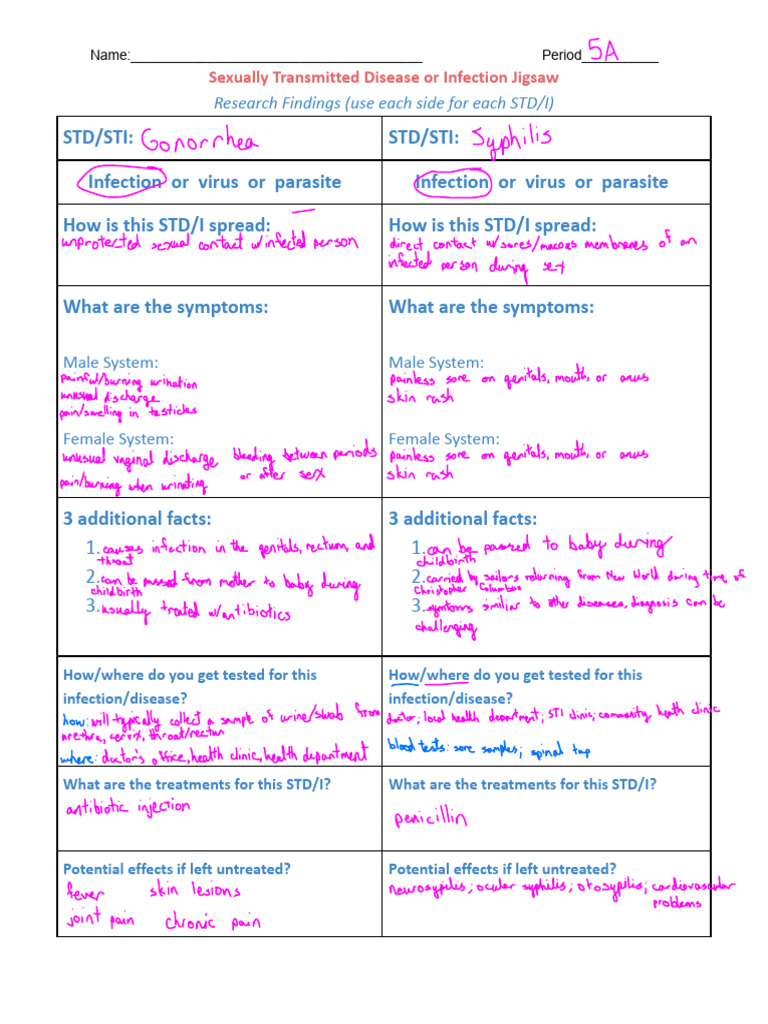 Name:____________________ Period 5A
Sexually Transmitted Disease or Infection Jigsaw
Research Findings (use each side for each STD/I)
STD/STI: Gonorrhea
STD/STI: Syphilis
Infection or virus or parasite
Infection or virus or parasite
How is this STD/I spread:
unprotected sexual contact w/infected person
How is this STD/I spread:
direct contact w/sores/mucous membranes of an
infected person during sex
What are the symptoms:
Male System:
painful/burning urination
unusual discharge
pain/swelling in testicles
Female System:
unusual vaginal discharge bleeding between periods
pain/burning when urinating or after sex
What are the symptoms:
Male System:
painless sore on genitals, mouth, or anus
skin rash
Female System:
painless sore on genitals, mouth, or anus
skin rash
3 additional facts:
1. causes infection in the genitals, rectum, and
throat
2. can be passed from mother to baby during
childbirth
3. usually treated w/antibiotics
3 additional facts:
1. can be passed to baby during
childbirth
2. carried by sailors returning from New World during time of
Christopher Columbus
3. symptoms similar to other diseases, diagnosis can be
challenging
How/where do you get tested for this
infection/disease?
how: will typically collect a sample of urine/swab from
urethra, cervix, throat/rectum
where: doctor's office, health clinic, health department
How/where do you get tested for this
infection/disease?
doctor; local health department; STI clinic; community heath clinic
blood tests: sore samples; spinal tap
What are the treatments for this STD/I?
antibiotic injection
What are the treatments for this STD/I?
penicillin
Potential effects if left untreated?
fever skin lesions
joint pain chronic pain
Potential effects if left untreated?
neurosypilis; ocular syphilis; otosypilis; cardiovascular
problems